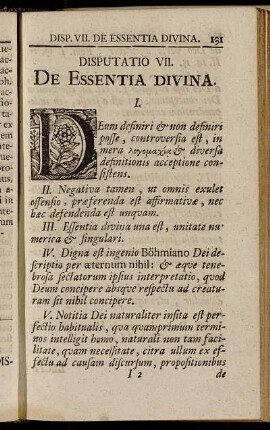 DISP. VII. DE ESSENTIA DIVINA. 131
DISPUTATIO VII.
DE ESSENTIA DIVINA.
I.
DEum definiri & non definiri
posse, controversia est, in
mera λογομαχία & diversa
definitionis acceptione con-
sistens.
II. Negativa tamen, ut omnis exulet
offensio, præferenda est affirmativæ, nec
hæc defendenda est unquam.
III. Essentia divina una est, unitate nu-
merica & singulari.
IV. Digna est ingenio Böhmiano Dei de-
scriptio per æternum nihil: & æque tene-
brosa sectatorum ipsius interpretatio, quod
Deum concipere absque respectu ad creatu-
ram sit nihil concipere.
V. Notitia Dei naturaliter insita est per-
fectio habitualis, qua quamprimum termi-
nos intelligit homo, naturali non tam faci-
litate, quam necessitate, citra ullum ex ef-
fectu ad causam discursum, propositionibus
I 2 de